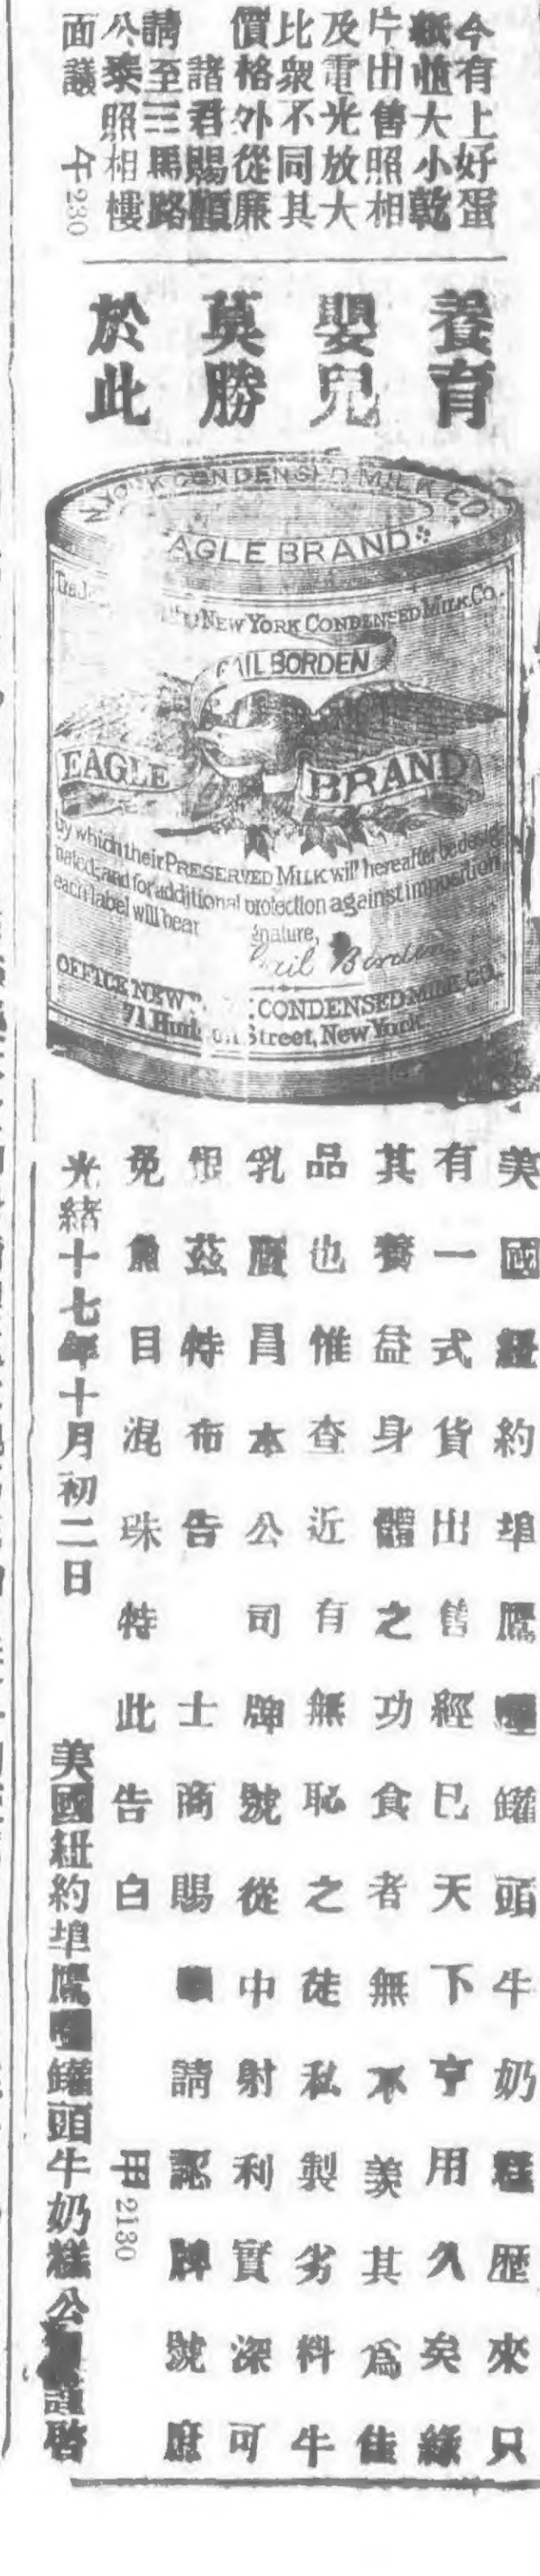 今有上好蛋
紙並大小乾
片出售照相
及電光放大
比衆不同其
價格外從廉
諸君賜顧
請至三馬路
公泰照相樓
面議 午230
養育
嬰兒
莫勝
於此
N.YORK CONDENSED MILK CO
AGLE BRAND
NEW YORK CONDENSED MILK Co.
AIL BORDEN
EAGLE BRAND
by which their PRESERVED MILK will hereafter be desig-
nated; and for additional protection against imposition
each label will bear gnature,
Gail Borden
OFFICE NEW CONDENSED MILK CO.
71 Hudson Street, New York
美國紐約埠鷹罐頭牛奶歷來只
有一式貨出售經已天下亨用久矣緣
其養益身體之功食者無不羨其為佳
品也惟查近有無恥之徒私製劣料牛
乳冒本公司牌號從中射利實深可
恨茲特布告 士商賜請認牌號庶
免魚目混珠特此告白 2130
光緒十七年十月初二日 美國紐約埠鷹罐頭牛奶糕公謹啓